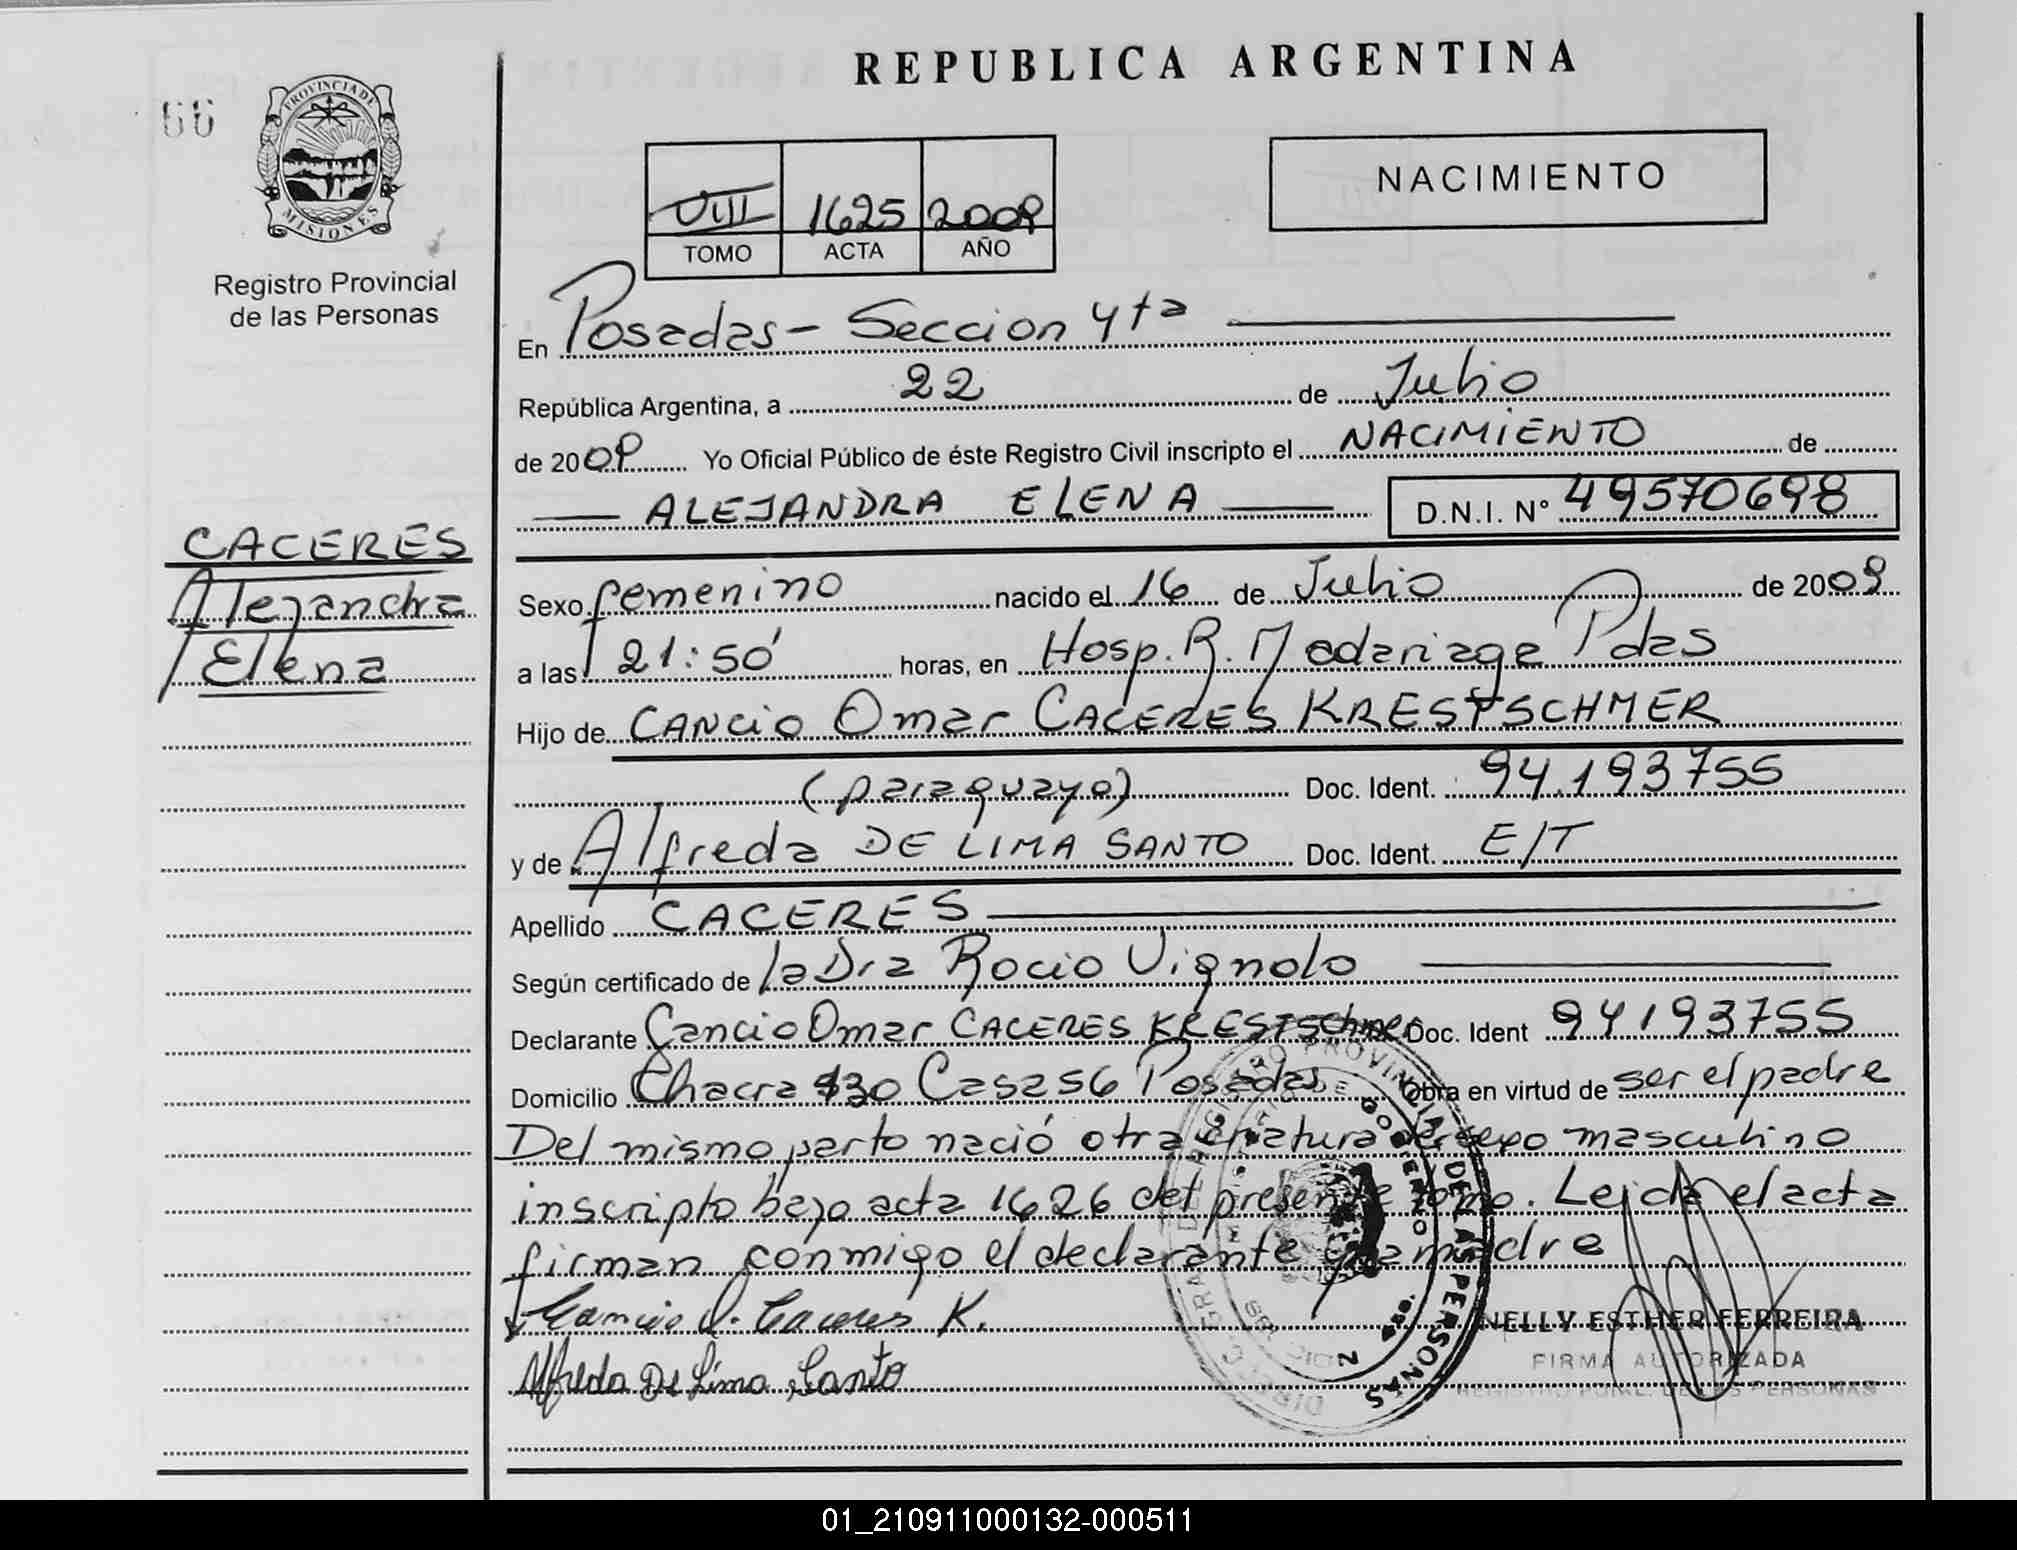 REPUBLICA ARGENTINA
66
PROVINCIA DE
MISIONES
Registro Provincial
de las Personas
NACIMIENTO
VIII 1625 2009
TOMO ACTA AÑO
En Posadas - Seccion 4ta
República Argentina, a 22 de Julio
de 2009 Yo Oficial Público de éste Registro Civil inscripto el NACIMIENTO de
ALEJANDRA ELENA D.N.I. Nº 49570698
CACERES
Alejandra
Elena
Sexo femenino nacido el 16 de Julio de 2009
a las 21:50 horas, en Hosp. R. Madariaga Pdas
Hijo de CANCIO Omar CACERES KRESTSCHMER
(paraguayo) Doc. Ident. 94.193755
y de Alfreda DE LIMA SANTO Doc. Ident. E/T
Apellido CACERES
Según certificado de la Dra Rocio Vignolo
Declarante Cancio Omar CACERES KRESTSchmer Doc. Ident 94193755
Domicilio Chacra 30 Casa 56 Posadas Obra en virtud de ser el padre
Del mismo parto nació otra criatura de sexo masculino
inscripto bajo acta 1626 del presente tomo. Leida el acta
firman conmigo el declarante y la madre
Cancio O. Caceres K.
Alfreda De Lima Santo
NELLY ESTHER FERREIRA
FIRMA AUTORIZADA
REGISTRO DE LAS PERSONAS
REGISTRO PROVINCIAL DE LAS PERSONAS
01_210911000132-000511